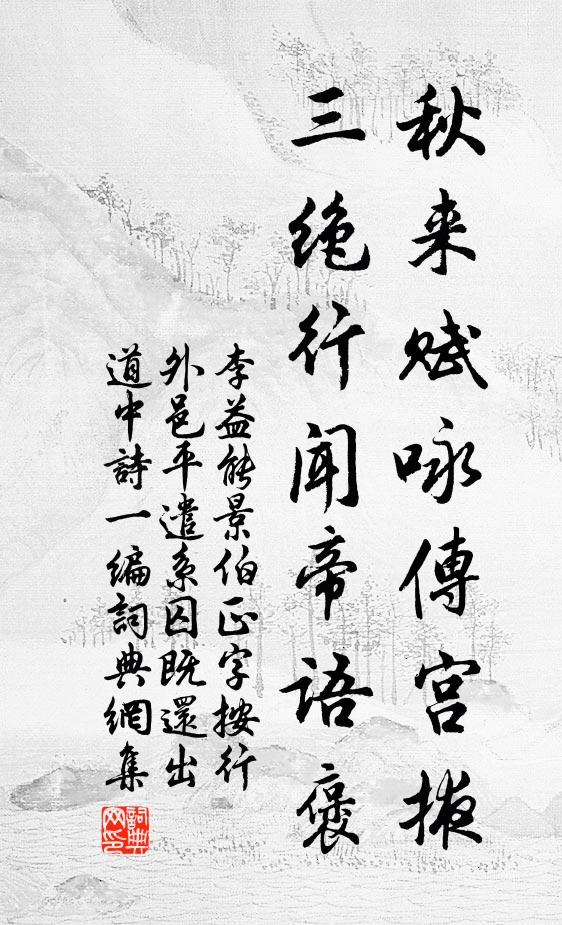 秋来赋咏傳宫掖
三绝行闻帝语褒
李益能景伯正字按行
外邑平遣系囚既還出
道中詩一编詞典網集
詞典网印